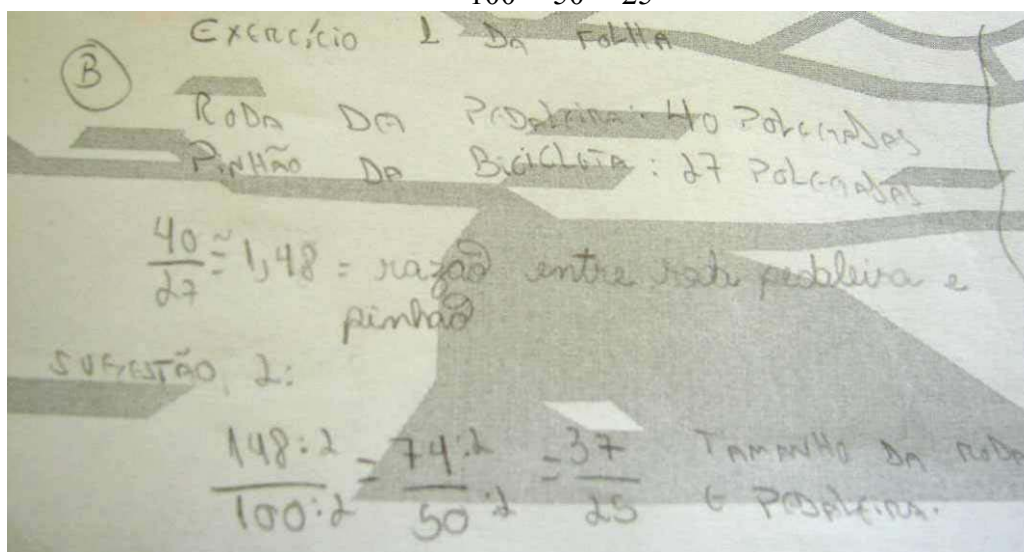 100 50 25
EXERCÍCIO 1 DA FOLHA
B
RODA DA PEDALEIRA: 40 POLEGADAS
PINHÃO DA BICICLETA: 27 POLEGADAS
40/27 ≅ 1,48 = razão entre roda pedaleira e
pinhão
SUGESTÃO 2:
148:2/100:2 = 74:2/50:2 = 37/25 TAMANHO DA RODA
E PEDALEIRA.